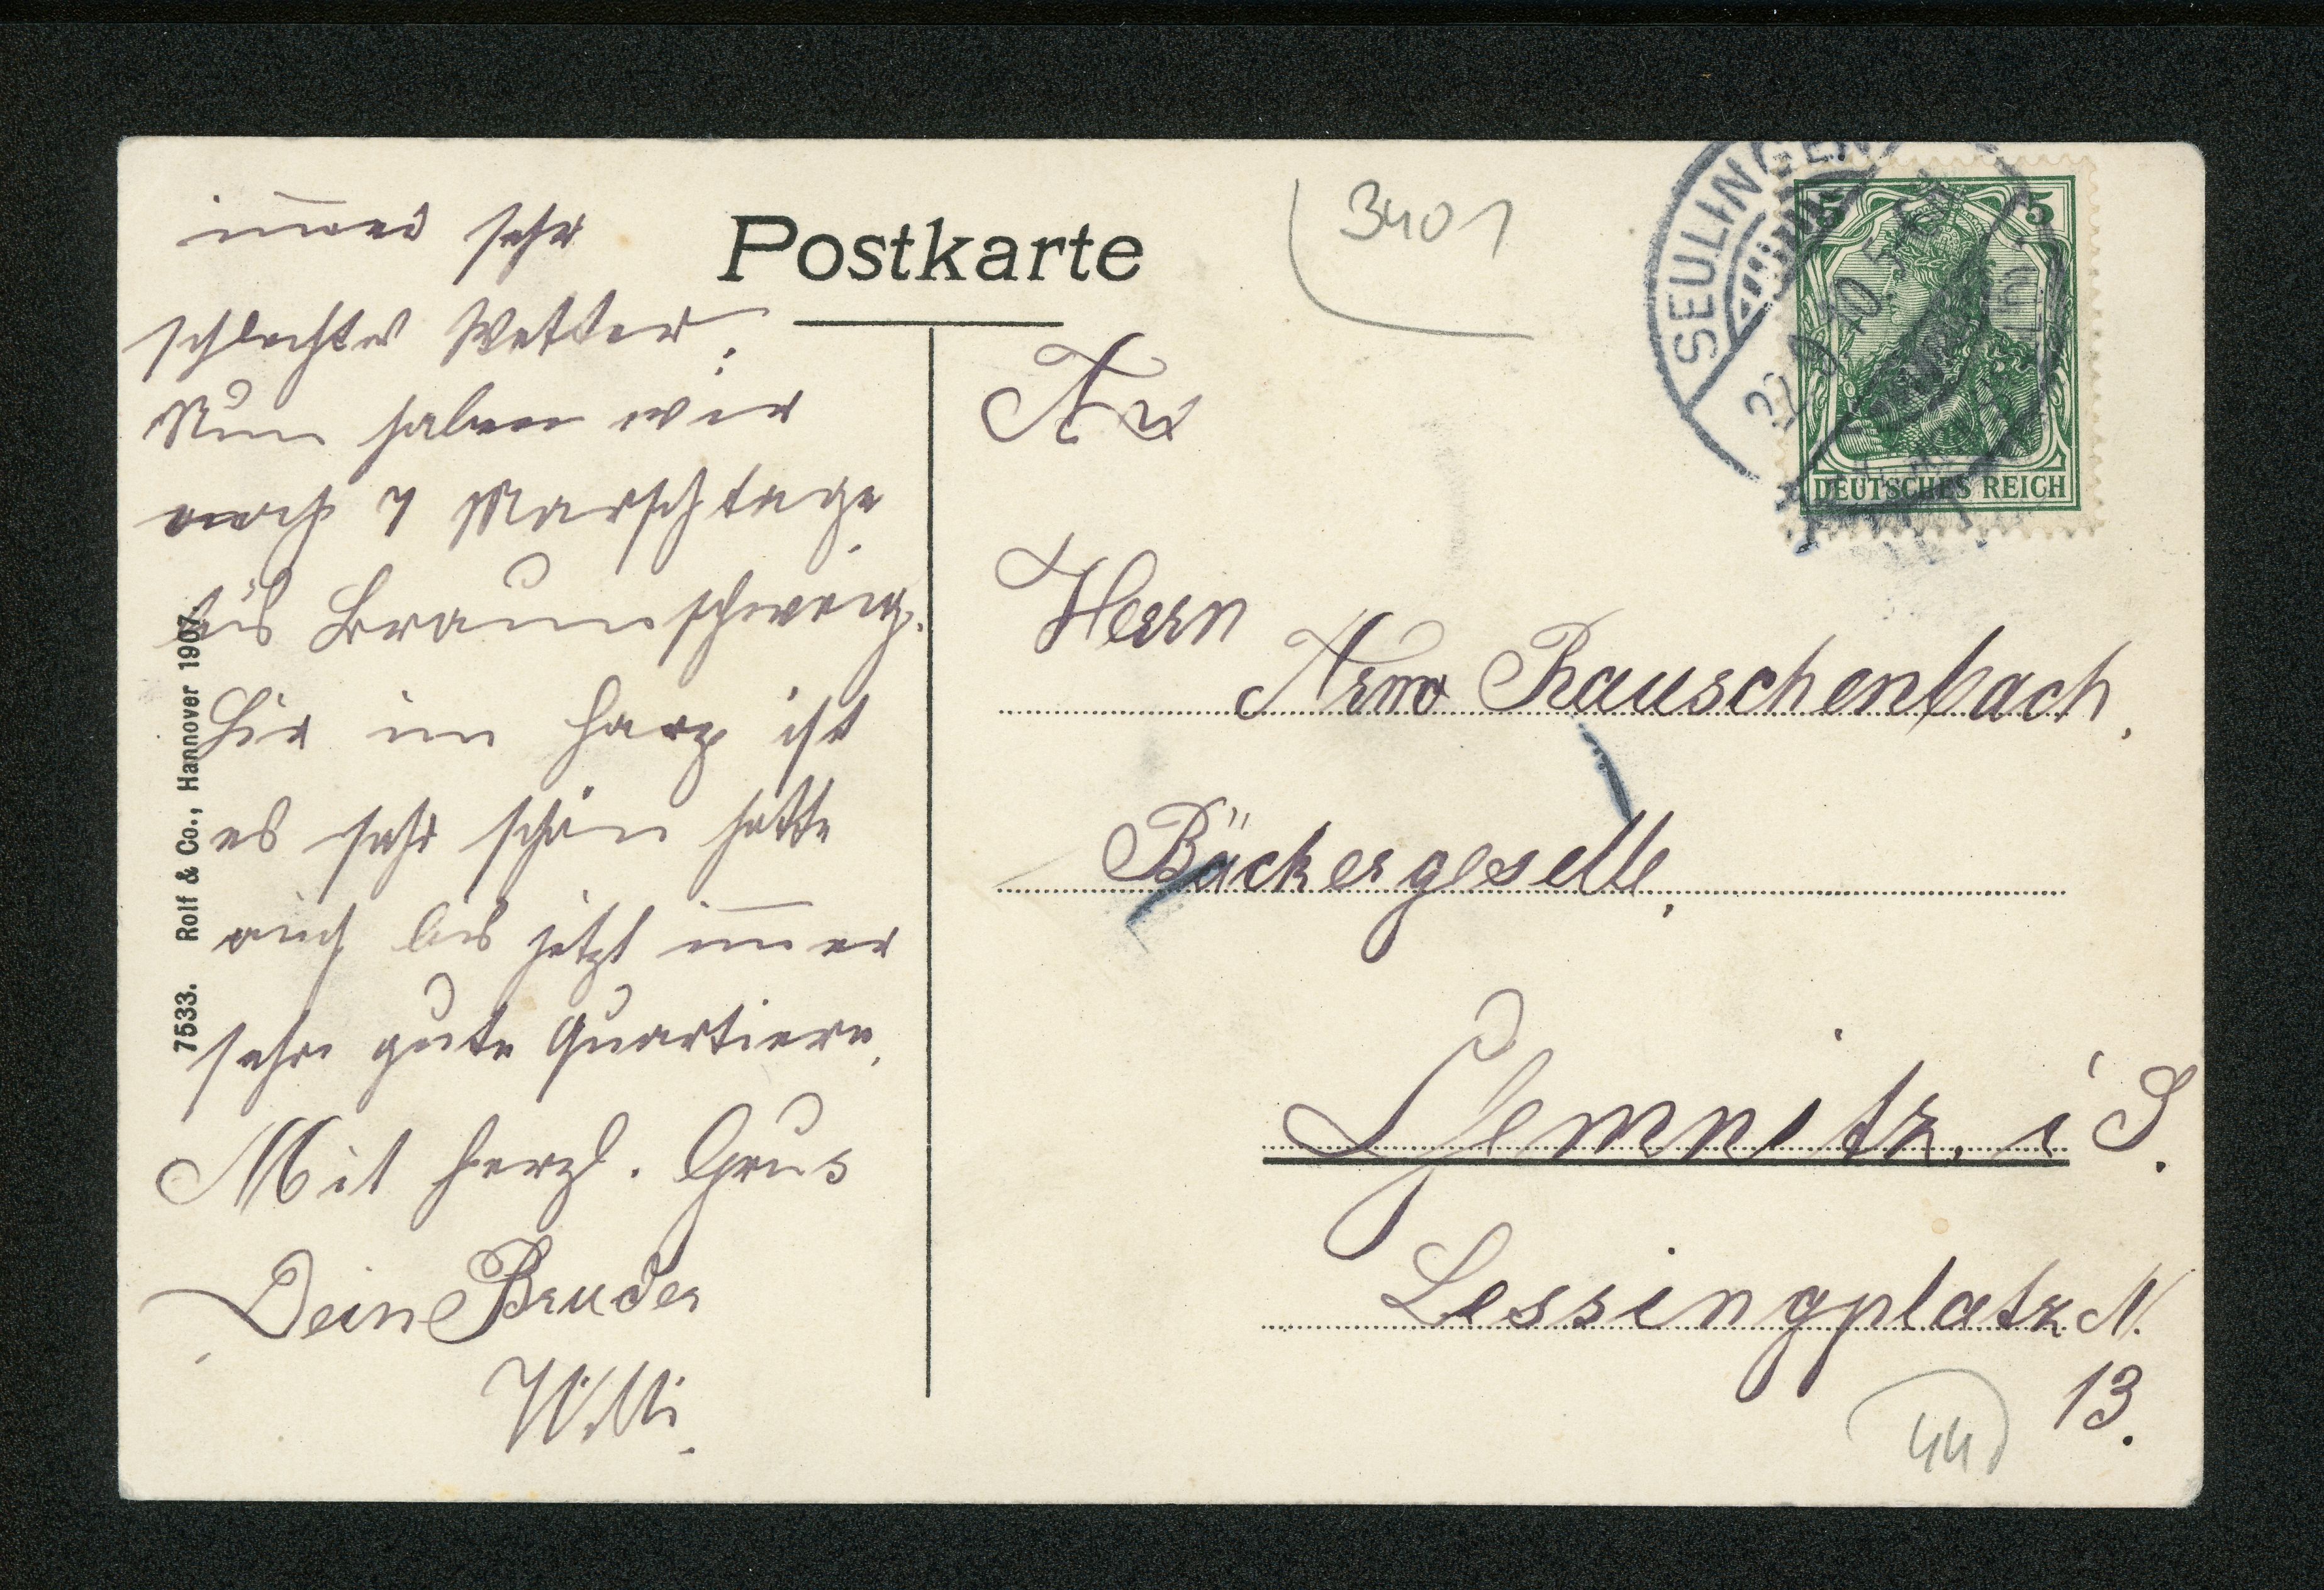 im̄er sehr
schlechtes Wetter.
Nun haben wir
noch 7 Marschtage
bis Braunschweig.
Hir im Harz ist
es sehr schön hatte
auch bis jetzt im̄er
sehr gute Quartiere.
Mit herzl. Grus
Dein Bruder
Willi.
7533. Rolf & Co., Hannover 1907.
Postkarte
3401
SEULINGEN
5 5
DEUTSCHES REICH
An
Herrn
Arno Rauschenbach,
Bäckergeselle,
Chemnitz, i S.
Lessingplatz N.
13.
44